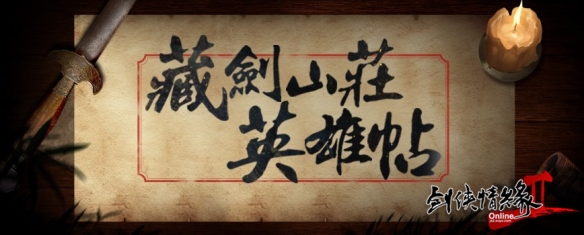 藏劍山莊
英雄帖
剑侠情缘II
Online